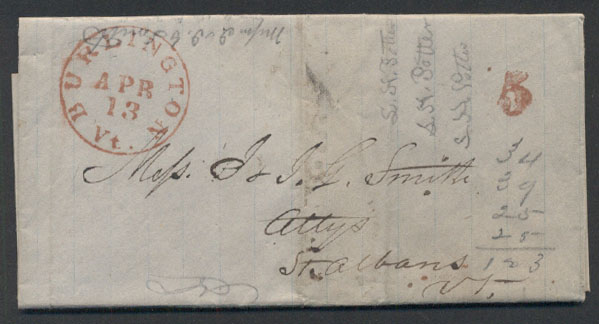 BURLINGTON
APR
13
Vt.
5
L. H. Potter
L. H. Potter
L. H. Potter
Mess. J & J. G. Smith
Attys
St. Albans
Vt.
34
39
25
25
123